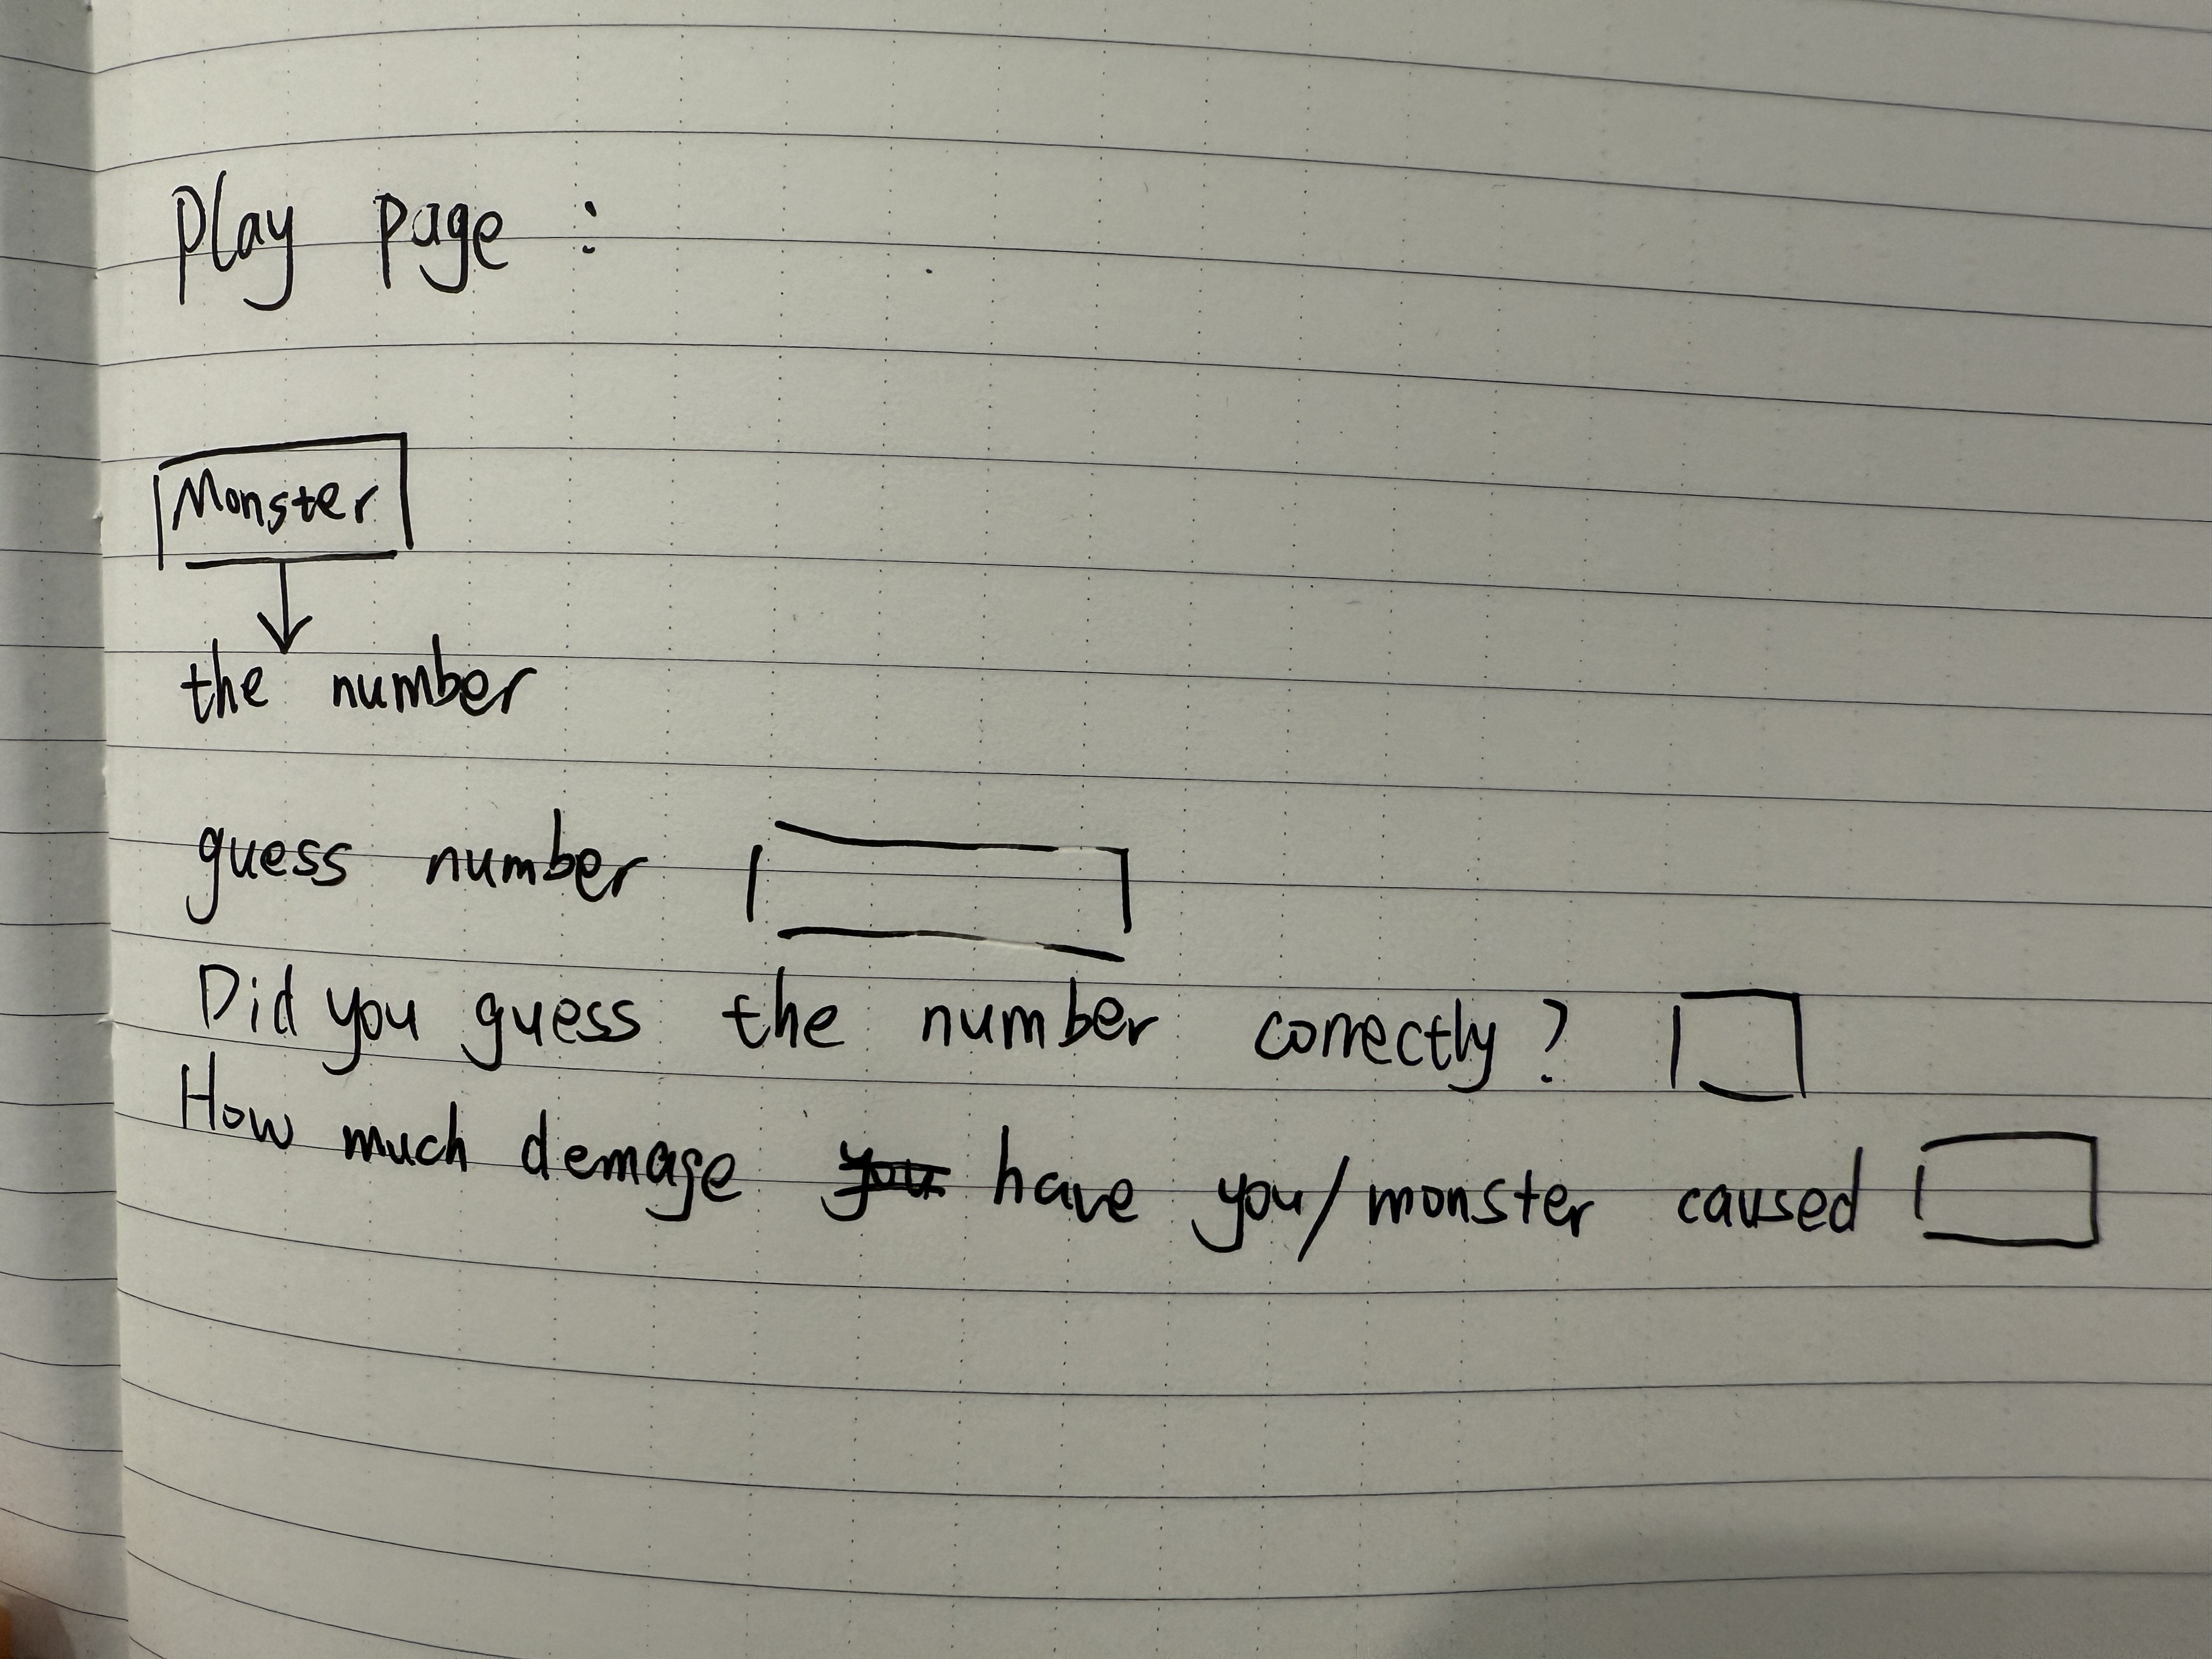 Play page :
Monster
the number
guess number
Did you guess the number correctly?
How much demage you have you/monster caused